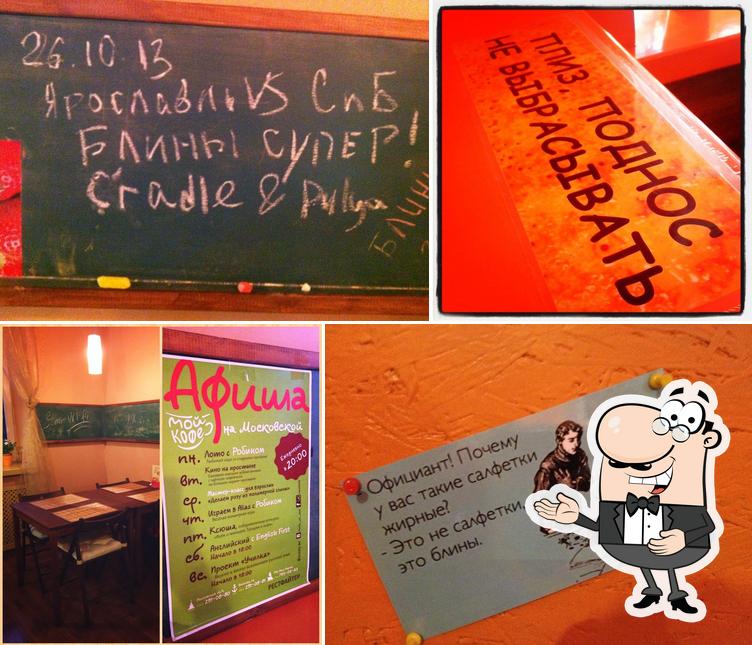 26.10.13
Ярославль VS СпБ
Блины супер!
Cradle &
Блины
ПЛИЗ, ПОДНОС
НЕ ВЫБРАСЫВАТЬ
Афиша
мой кофе
на Московской
Ежедневно
в 20:00
пн. Лото с Робиком
вт. Кино на простыне
ср. Мастер-класс для взрослых
«Делаем розу из полимерной глины»
чт. Играем в Alias с Робиком
пт. Ксюша
сб. Английский с English First
Начало в 18:00
вс. Проект «Училка»
Начало в 18:00
РЕСТФАЙТЕР
Официант! Почему
у вас такие салфетки
жирные?
- Это не салфетки,
это блины.